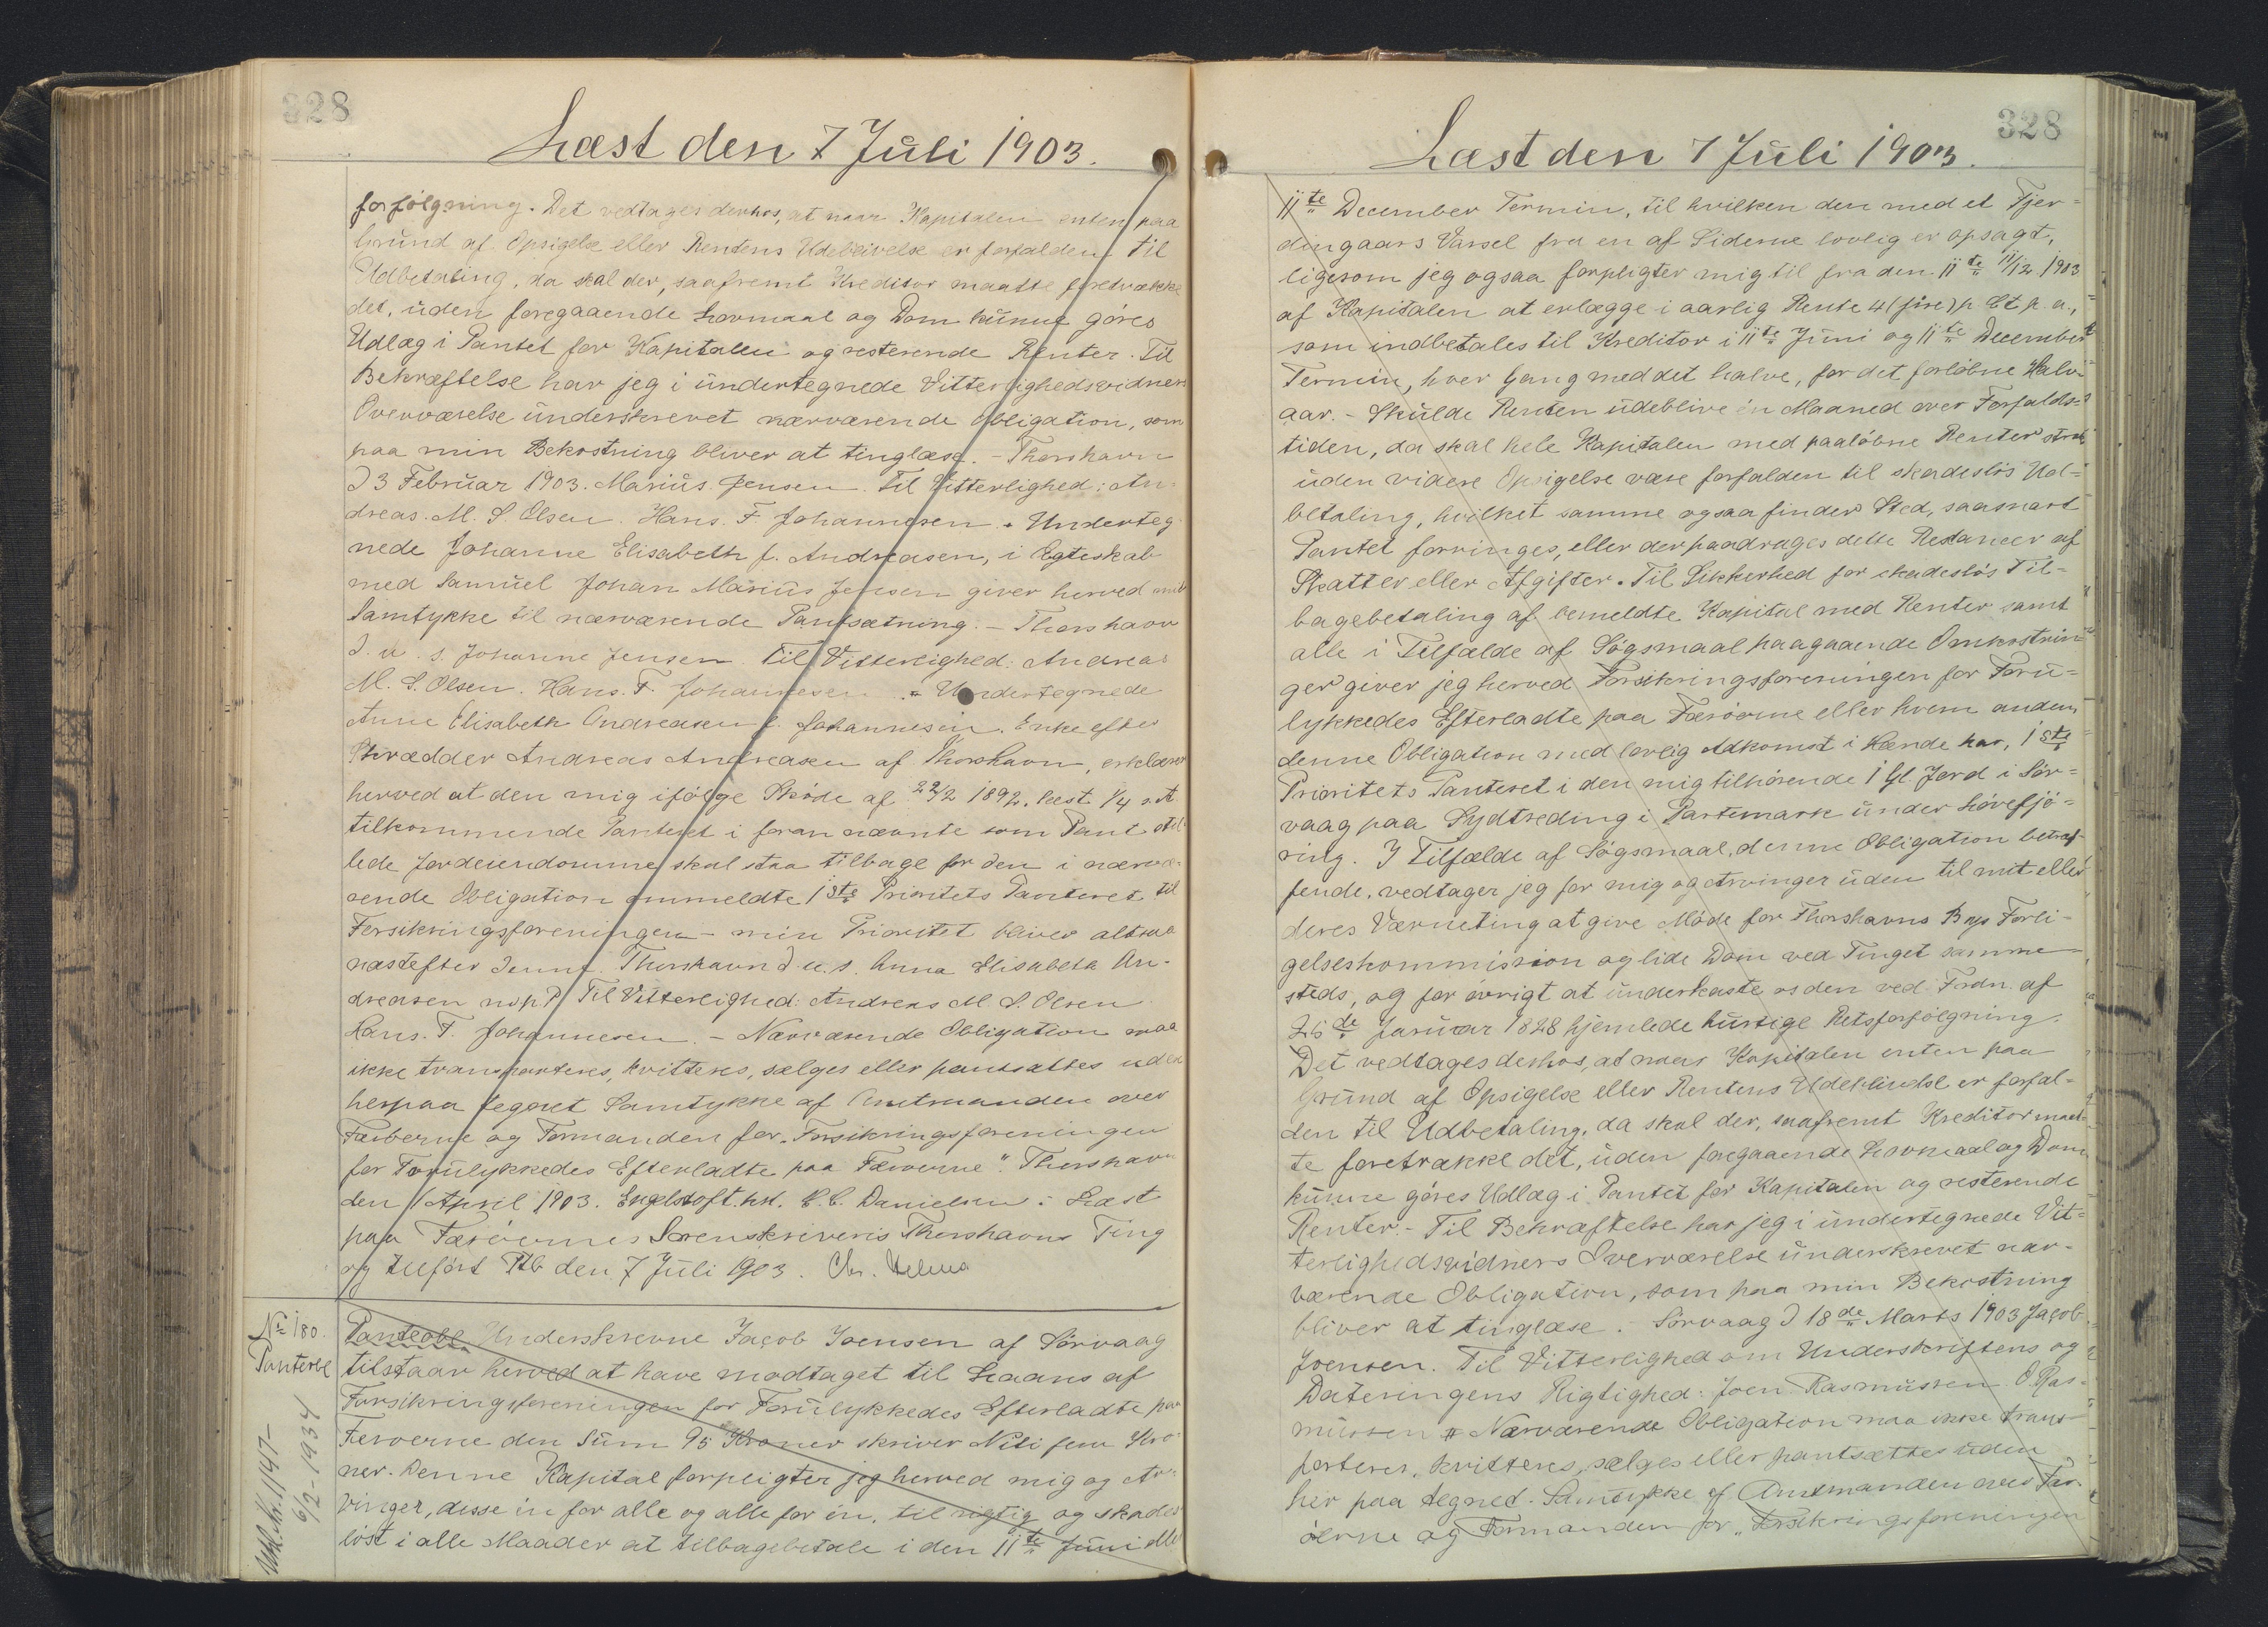 328
Læst den 7 Juli 1903.
forfølgning. Det vedtages derhos, at naar Kapitalen enten paa
Grund af Opsigelse eller Rentens Udeblivelse er forfalden til
Udbetaling, da skal der, saafremt Kreditor maatte foretrække
det, uden foregaaende Lovmaal og Dom kunne gøres
Udlæg i Pantet for Kapitalen og resterende Renter. Til
Bekræftelse har jeg i undertegnede Vitterlighedsvidners
Overværelse underskrevet nærværende Obligation, som
paa min Bekostning bliver at tinglæse. - Thorshavn
D 3 Februar 1903. Marius Jensen. Til Vitterlighed: An-
dreas. M. S. Olsen. Hans. F. Johannesen. Underteg
nede Johanne Elisabeth f. Andreasen, i Egteskab
med Samuel Johan Marius Jensen giver herved mit
Samtykke til nærværende Pantsætning. - Thorshavn
D. u. s. Johanne Jensen. Til Vitterlighed: Andreas
M. S. Olsen. Hans. F. Johannesen. Undertegnede
Anne Elisabeth Andreasen f. Johannesen. Enke efter
Skrædder Andreas Andreasen af Thorshavn, erklærer
herved at den mig ifølge Skøde af 22/2 1892. læst 1/4 s. A
tilkommende Panteret i foran nævnte som Pant stil
lede Jordeiendomme skal staa tilbage for den i nærvæ-
rende Obligation ommeldte 1ste Prioritets Panteret til
Forsikringsforeningen - min Prioritet bliver altsaa
næstefter denne. Thorshavn d u. s. Anna Elisabeth An-
dreasen m p P Til Vitterlighed: Andreas M S. Olsen
Hans. F. Johannesen. - Nærværende Obligation maa
ikke transporteres, kvitteres, sælges eller pantsættes uden
herpaa tegnet Samtykke af Amtmanden over
Færøerne og Formanden for "Forsikringsforeningen
for Forulykkedes Efterladte paa Færøerne". Thorshavn
den 1 April 1903. Engelstoft. kst. C. C. Danielsen: Læst
paa Færøernes Sorenskriveris Thorshavns Ting
og tilført Ptb den 7 Juli 1903.
No 180.
Panteobl
6/2-1934
Panteobl Underskrevne Jacob Joensen af Sørvaag
tilstaar herved at have modtaget til Laans af
Forsikringsforeningen for Forulykkedes Efterladte paa
Færøerne den Sum 95 Kroner skriver Niti fem Kro-
ner. Denne Kapital forpligter jeg herved mig og Ar-
vinger, disse én for alle og alle for én, til rigtig og skades
løst i alle Maader at tilbagebetale i den 11te Juni eller
328
Læst den 7 Juli 1903.
11te December Termin, til hvilken den med et Fjer-
dingaars Varsel fra en af Siderne lovlig er opsagt,
ligesom jeg ogsaa forpligter mig til fra den 11te 11/12 1903
af Kapitalen at erlægge i aarlig Rente 4 (fire) p. Ct p. a.,
som indbetales til Kreditor i 11te Juni og 11te December
Termin, hver Gang med det halve, for det forløbne Halv-
aar. - Skulde Renten udeblive én Maaned over Forfalds-
tiden, da skal hele Kapitalen med paaløbne Renter strax
uden videre Opsigelse være forfalden til skadesløs Ud-
betaling, hvilket samme ogsaa finder Sted, saasnart
Pantet forringes, eller der paadrages dette Restancer af
Skatter eller Afgifter. Til Sikkerhed for skadesløs Til-
bagebetaling af bemeldte Kapital med Renter samt
alle i Tilfælde af Søgsmaal paagaaende Omkostnin
ger giver jeg herved Forsikringsforeningen for Foru-
lykkedes Efterladte paa Færøerne eller hvem anden,
denne Obligation med lovlig Adkomst i Hænde har, 1ste
Prioritets Panteret i den mig tilhørende 1 Gl. Jord i Sør-
vaag paa Sydtreding i Partemark under Løvefjø-
ring. I Tilfælde af Søgsmaal, denne Obligation betræf-
fende, vedtager jeg for mig og Arvinger uden til mit eller
deres Værneting at give Møde for Thorshavns Byes Forli-
gelseskommission og lide Dom ved Tinget samme-
steds, og for øvrigt at underkaste os den ved Frdn. af
25de Januar 1828 hjemlede hurtige Retsforfølgning.
Det vedtages derhos, at naar Kapitalen enten paa
Grund af Opsigelse eller Rentens Udeblivelse er forfal-
den til Udbetaling, da skal der, saafremt Kreditor maat-
te foretrække det, uden foregaaende Lovmaal og Dom
kunne gøres Udlæg i Pantet for Kapitalen og resterende
Renter. - Til Bekræftelse har jeg i undertegnede Vit-
terlighedsvidners Overværelse underskrevet nær-
værende Obligation, som paa min Bekostning
bliver at tinglæse. Sørvaag D 18de Marts 1903 Jacob
Joensen. Til Vitterlighed om Underskriftens og
Dateringens Rigtighed: Joen Rasmussen O. Ras-
mussen Nærværende Obligation maa ikke trans-
porteres, kvitteres, sælges eller pantsættes uden
her paa tegned Samtykke af Amtmanden over Fær-
øerne og Formanden for "Forsikringsforeningen